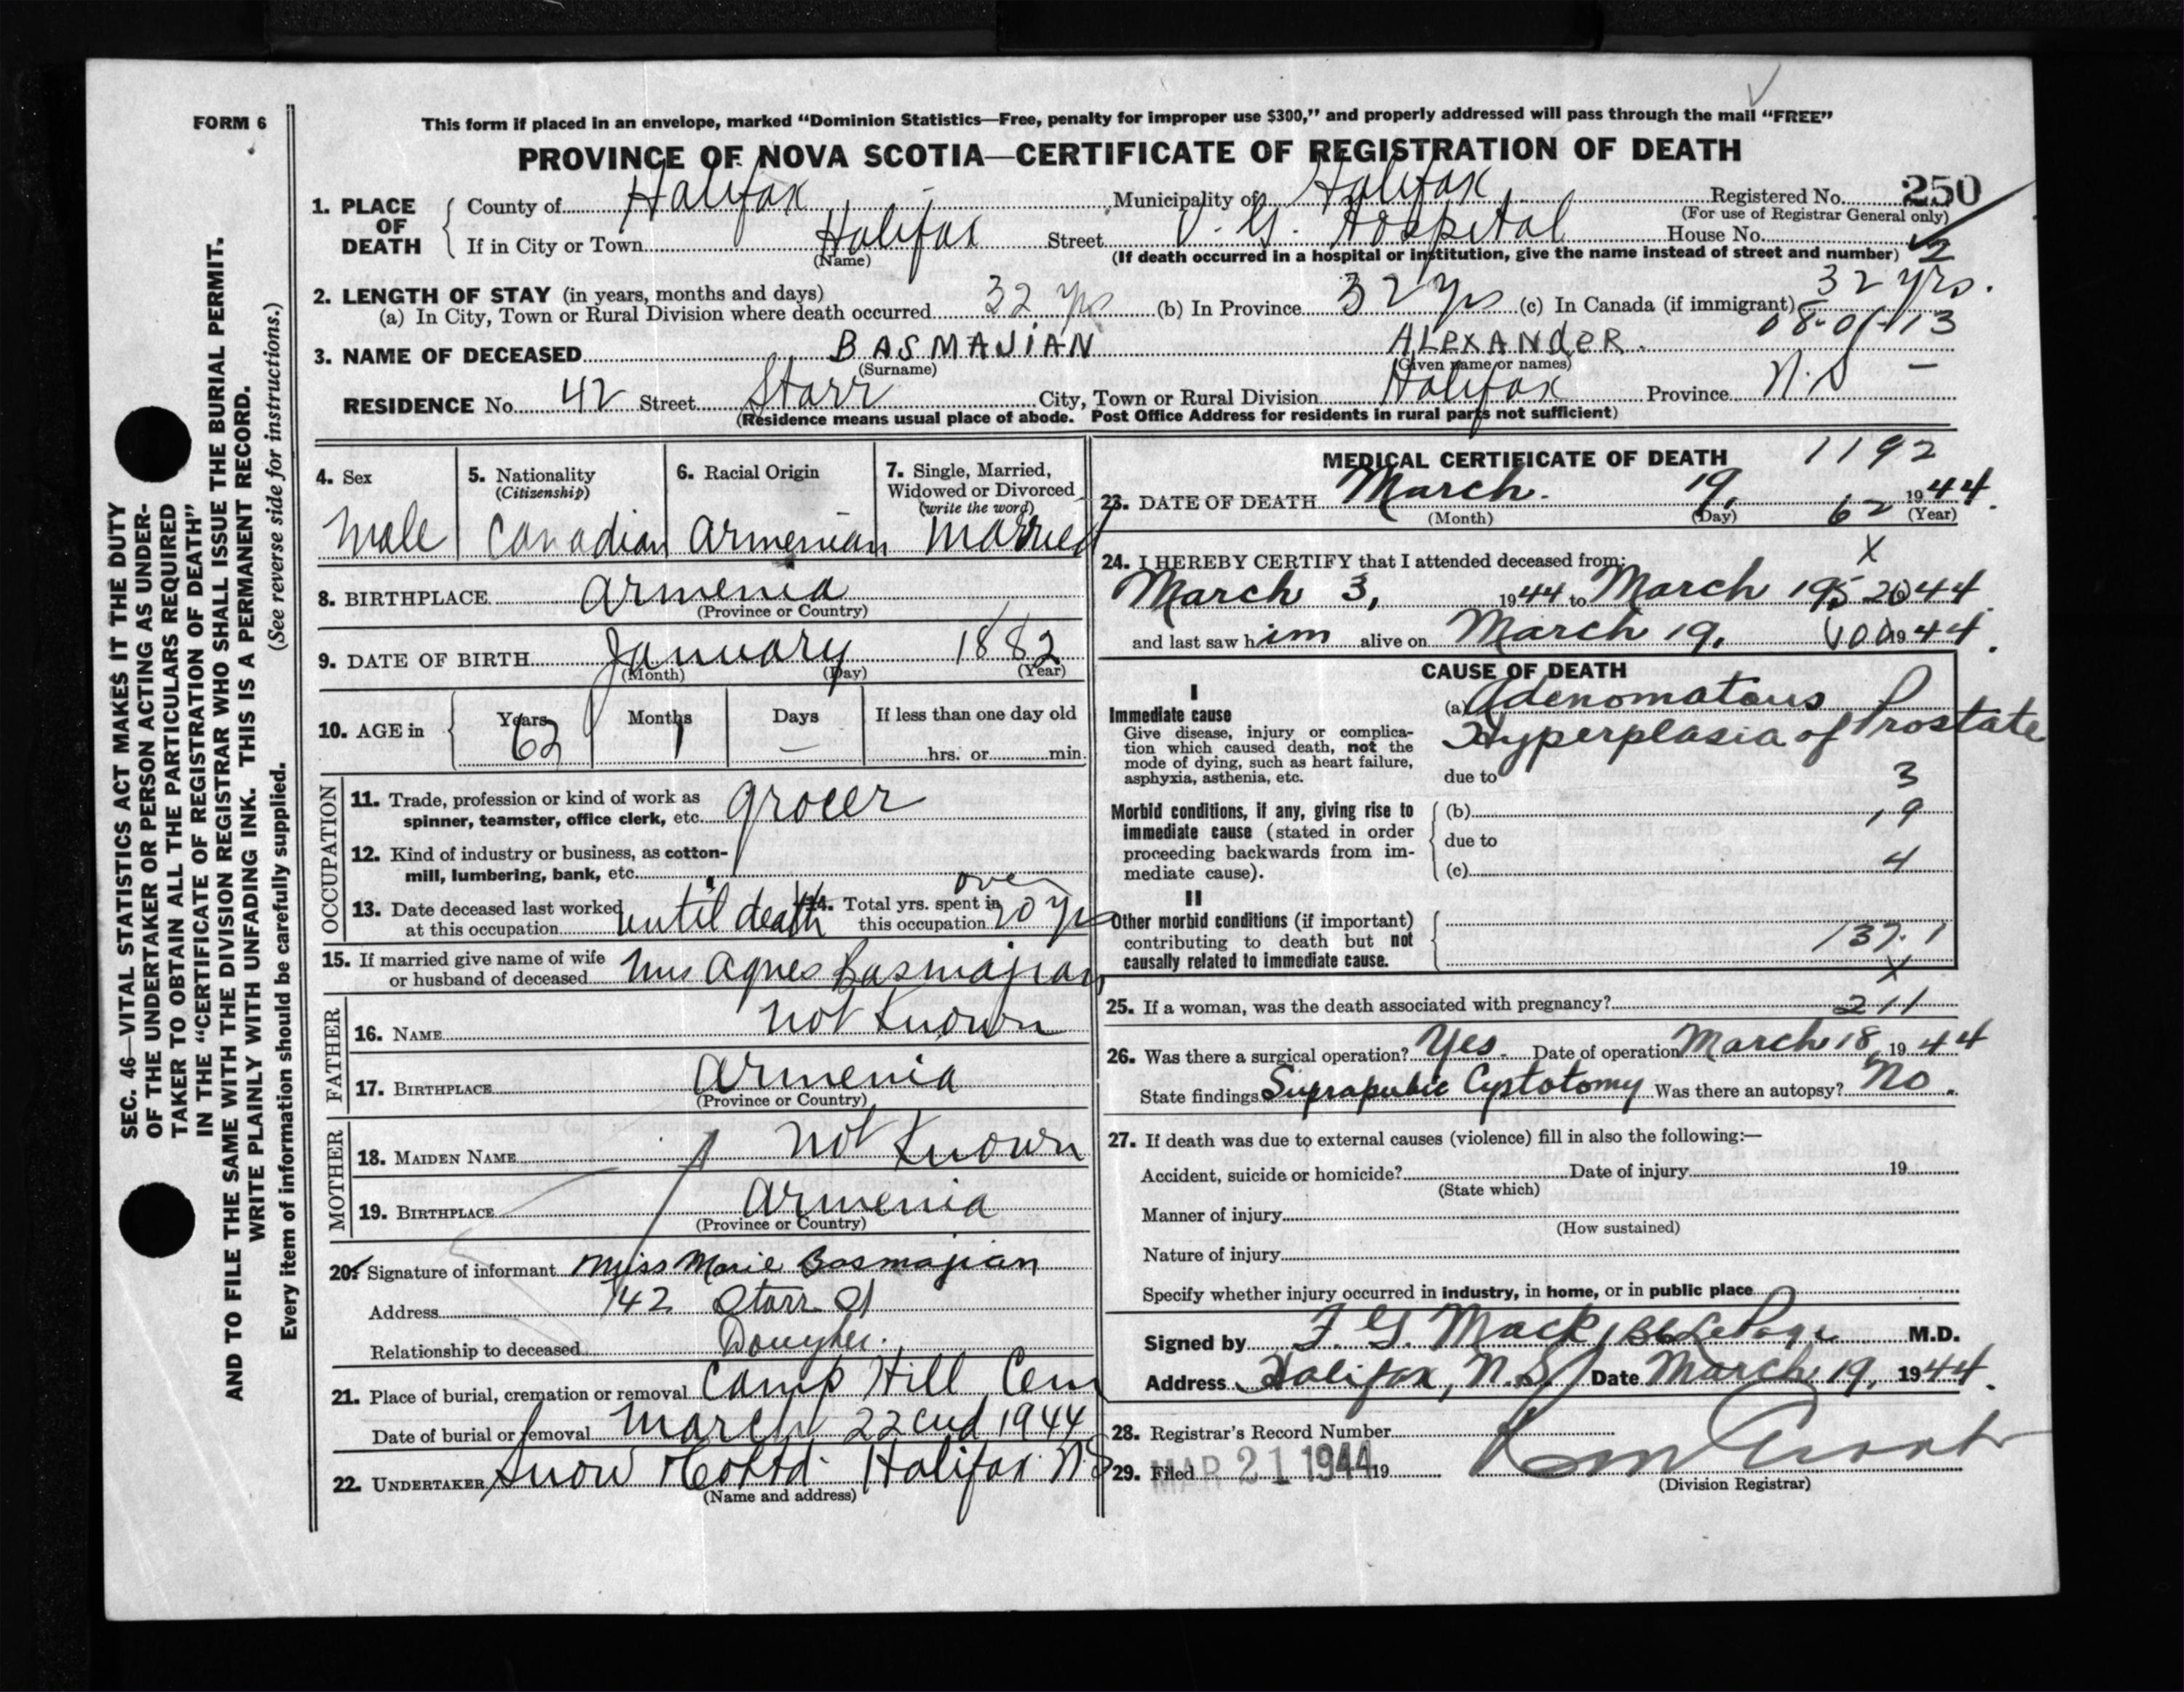 FORM 6
This form if placed in an envelope, marked "Dominion Statistics—Free, penalty for improper use $300," and properly addressed will pass through the mail "FREE"
PROVINCE OF NOVA SCOTIA—CERTIFICATE OF REGISTRATION OF DEATH
SEC. 46—VITAL STATISTICS ACT MAKES IT THE DUTY
OF THE UNDERTAKER OR PERSON ACTING AS UNDER-
TAKER TO OBTAIN ALL THE PARTICULARS REQUIRED
IN THE "CERTIFICATE OF REGISTRATION OF DEATH"
AND TO FILE THE SAME WITH THE DIVISION REGISTRAR WHO SHALL ISSUE THE BURIAL PERMIT.
WRITE PLAINLY WITH UNFADING INK. THIS IS A PERMANENT RECORD.
(See reverse side for instructions.)
Every item of information should be carefully supplied.
1. PLACE OF DEATH
County of Halifax Municipality of Halifax Registered No. 250
(For use of Registrar General only)
If in City or Town Halifax Street V. G. Hospital House No.
(Name) (If death occurred in a hospital or institution, give the name instead of street and number)
2. LENGTH OF STAY (in years, months and days)
(a) In City, Town or Rural Division where death occurred 32 yrs (b) In Province 32 yrs (c) In Canada (if immigrant) 32 yrs.
08-01-13
3. NAME OF DECEASED BASMAJIAN ALEXANdER.
(Surname) (Given name or names)
RESIDENCE No. 42 Street Starr City, Town or Rural Division Halifax Province N.S —
(Residence means usual place of abode. Post Office Address for residents in rural parts not sufficient)
4. Sex 5. Nationality (Citizenship) 6. Racial Origin 7. Single, Married, Widowed or Divorced (write the word)
Male Canadian Armenian Married
8. BIRTHPLACE Armenia
(Province or Country)
9. DATE OF BIRTH January 1882
(Month) (Day) (Year)
10. AGE in Years Months Days If less than one day old
62 1 — hrs. or min.
OCCUPATION
11. Trade, profession or kind of work as
spinner, teamster, office clerk, etc. grocer
12. Kind of industry or business, as cotton-
mill, lumbering, bank, etc.
13. Date deceased last worked at this occupation until death 14. Total yrs. spent in this occupation over 20 yrs
15. If married give name of wife
or husband of deceased Mrs Agnes Basmajian
FATHER
16. NAME not Known
17. BIRTHPLACE Armenia
(Province or Country)
MOTHER
18. MAIDEN NAME not Known
19. BIRTHPLACE Armenia
(Province or Country)
20. Signature of informant Miss Marie Basmajian
Address 42 Starr St
Relationship to deceased Daughter.
21. Place of burial, cremation or removal Camp Hill Cem
Date of burial or removal March 22cnd 1944
22. UNDERTAKER Snow & Co Ltd. Halifax N.S
(Name and address)
MEDICAL CERTIFICATE OF DEATH 1192
23. DATE OF DEATH March. 19, 1944.
(Month) (Day) 62 (Year)
24. I HEREBY CERTIFY that I attended deceased from: X
March 3, 1944 to March 19, 1944.
and last saw him alive on March 19, 1944.
CAUSE OF DEATH
I
Immediate cause
Give disease, injury or complica-
tion which caused death, not the
mode of dying, such as heart failure,
asphyxia, asthenia, etc.
(a) Adenomatous
Hyperplasia of Prostate
due to 3
Morbid conditions, if any, giving rise to
immediate cause (stated in order
proceeding backwards from im-
mediate cause).
(b) 19
due to
(c) 4
II
Other morbid conditions (if important)
contributing to death but not
causally related to immediate cause.
137.1
X
25. If a woman, was the death associated with pregnancy? 211
26. Was there a surgical operation? Yes. Date of operation March 18, 1944
State findings Suprapubic Cystotomy Was there an autopsy? No.
27. If death was due to external causes (violence) fill in also the following:—
Accident, suicide or homicide? Date of injury 19
(State which)
Manner of injury
(How sustained)
Nature of injury
Specify whether injury occurred in industry, in home, or in public place
Signed by F. G. Mack M.D.
Address Halifax, N.S. Date March 19, 1944.
28. Registrar's Record Number
29. Filed MAR 21 1944 19
(Division Registrar)